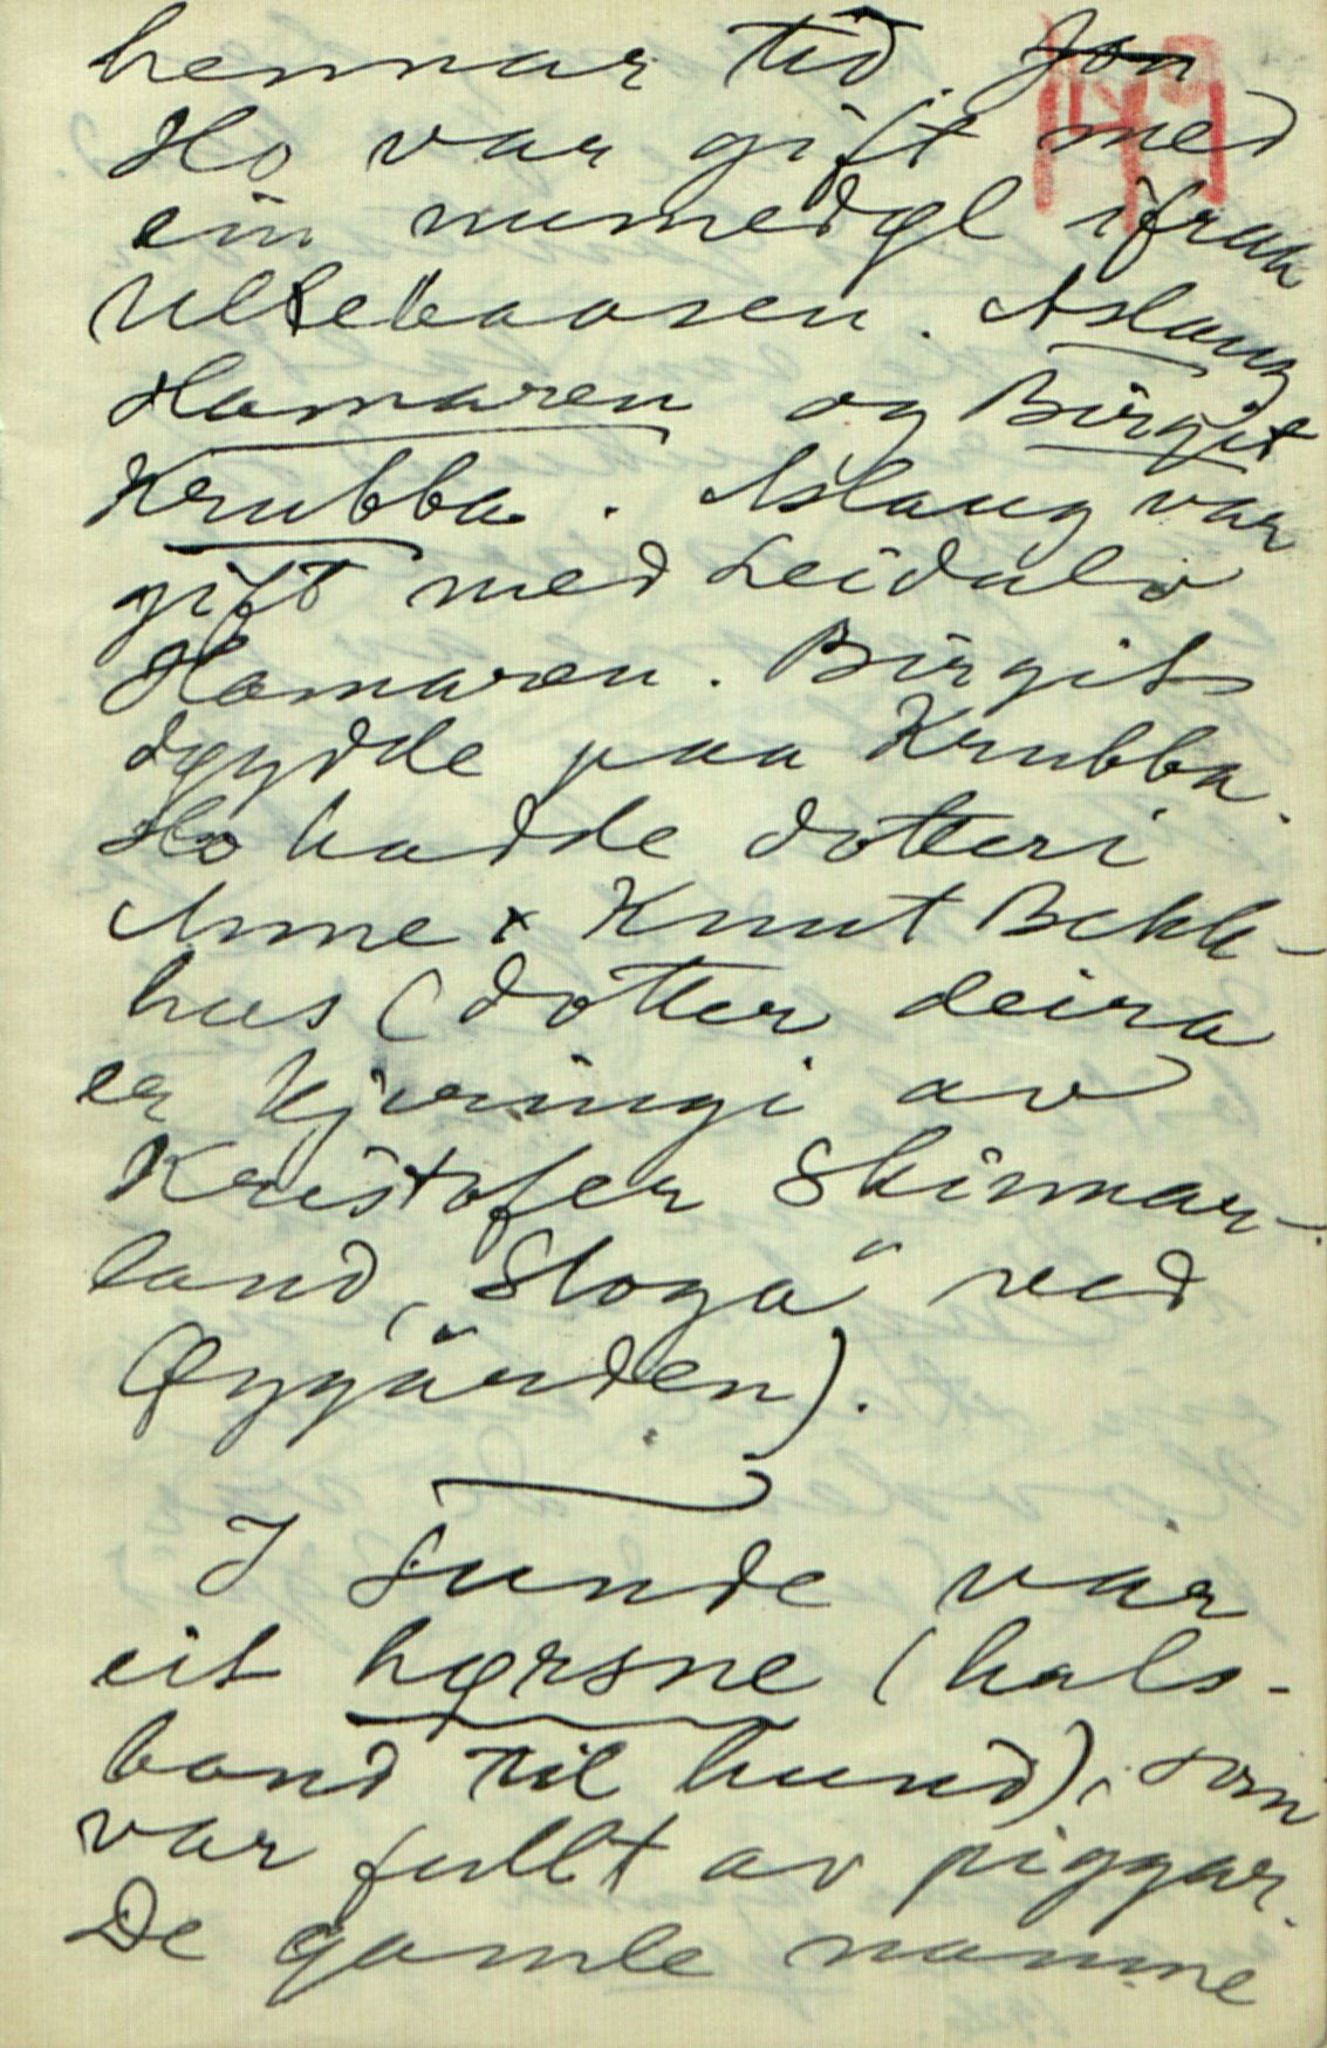 hennar tid. Jon
Ho var gift med
ein numedøl ifraa
Ult
Hamaren og Birgit
Krubba. Aslaug var
gift med Leidulv
Hamaren. Birgit
døydde paa Krubba.
Ho hadde dotteri
Anne x Knut Bekk-
hus (dotter deira
er kjeringi av
Kristofer Skinnar-
land, "Sloga" ved
Øygarden).
I Sunde var
eit hørsne (hals-
band til hund), som
var fullt av piggar.
De gamle namne